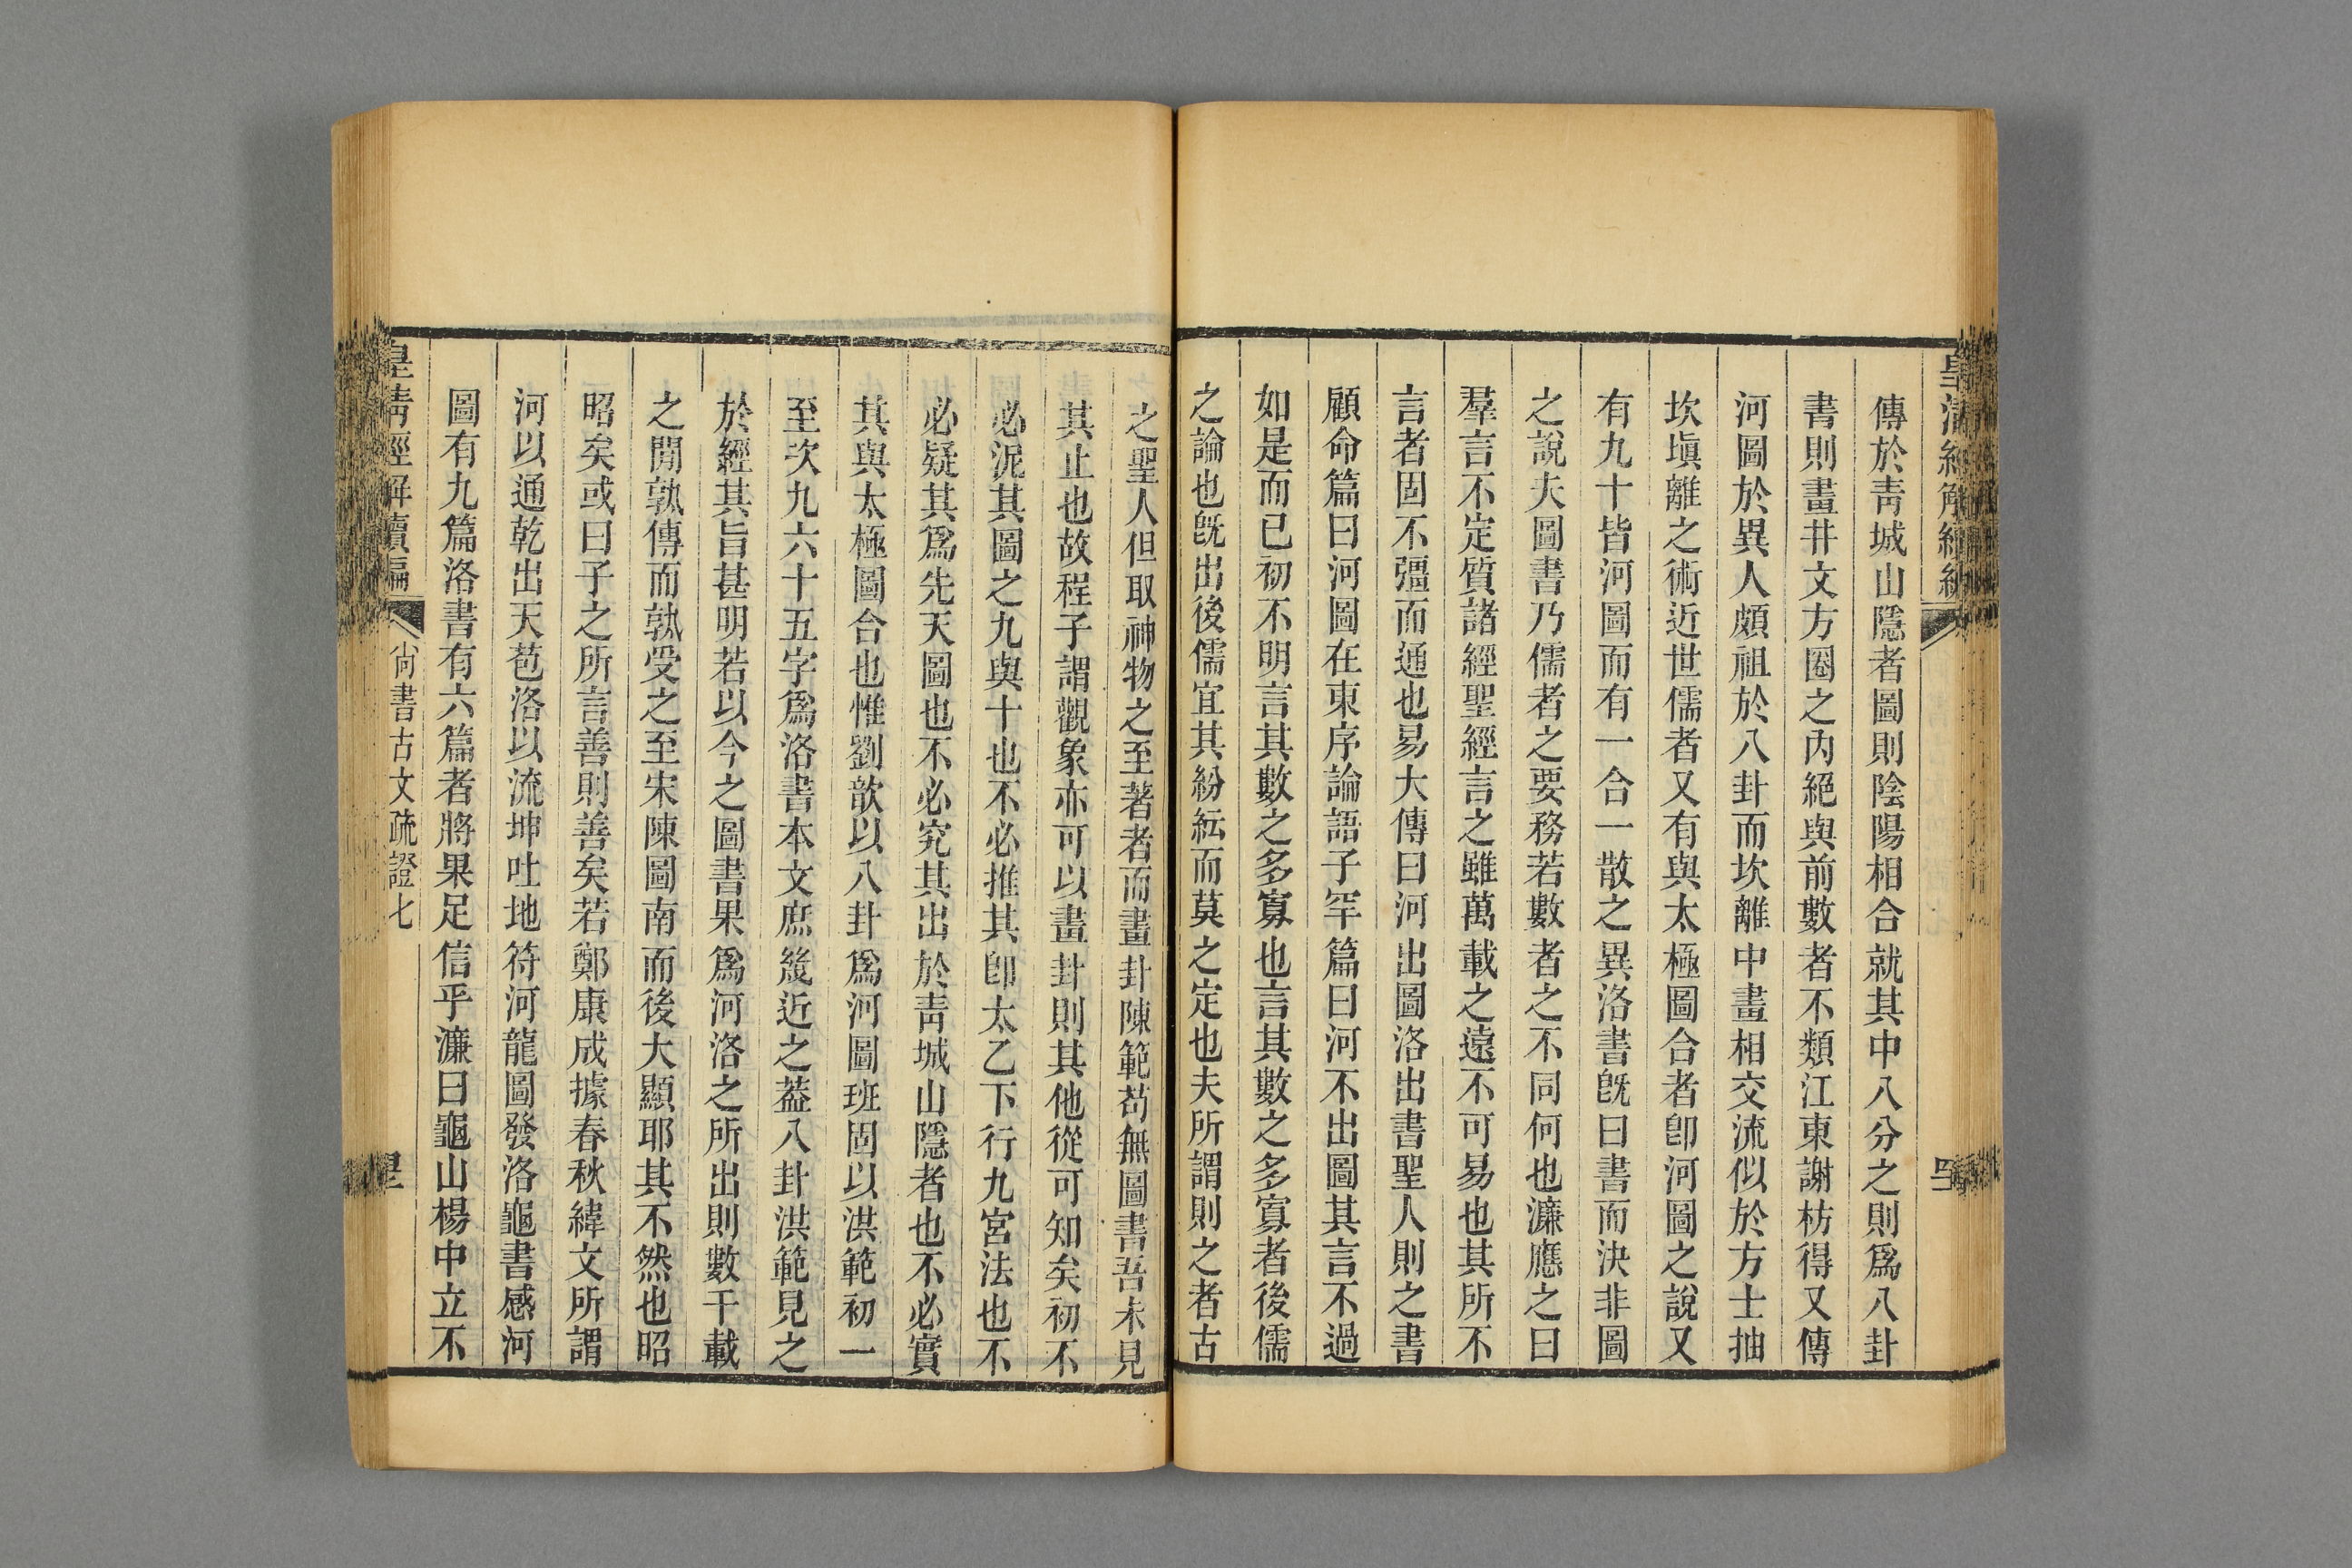 傳於靑城山隱者圖則陰陽相合就其中八分之則爲八卦
書則畫井文方圈之內絕與前數者不類江東謝枋得又傳
河圖於異人頗祖於八卦而坎離中畫相交流似於方士抽
坎塡離之術近世儒者又有與太極圖合者卽河圖之說又
有九十皆河圖而有一合一散之異洛書旣曰書而決非圖
之說夫圖書乃儒者之要務若數者之不同何也濂應之曰
羣言不定質諸經聖經言之雖萬載之遠不可易也其所不
言者固不彊而通也易大傳曰河出圖洛出書聖人則之書
顧命篇曰河圖在東序論語子罕篇曰河不出圖其言不過
如是而已初不明言其數之多寡也言其數之多寡者後儒
之論也旣出後儒宜其紛紜而莫之定也夫所謂則之者古
之聖人但取神物之至著者而畫卦陳範苟無圖書吾未見
其止也故程子謂觀象亦可以畫卦則其他從可知矣初不
必泥其圖之九與十也不必推其卽太乙下行九宮法也不
必疑其爲先天圖也不必究其出於靑城山隱者也不必實
其與太極圖合也惟劉歆以八卦爲河圖班固以洪範初一
至次九六十五字爲洛書本文庶幾近之葢八卦洪範見之
於經其旨甚明若以今之圖書果爲河洛之所出則數千載
之閒孰傳而孰受之至宋陳圖南而後大顯耶其不然也昭
昭矣或曰子之所言善則善矣若鄭康成據春秋緯文所謂
河以通乾出天苞洛以流坤吐地符河龍圖發洛龜書感河
圖有九篇洛書有六篇者將果足信乎濂曰龜山楊中立不
皇淸經解續編
尙書古文疏證七